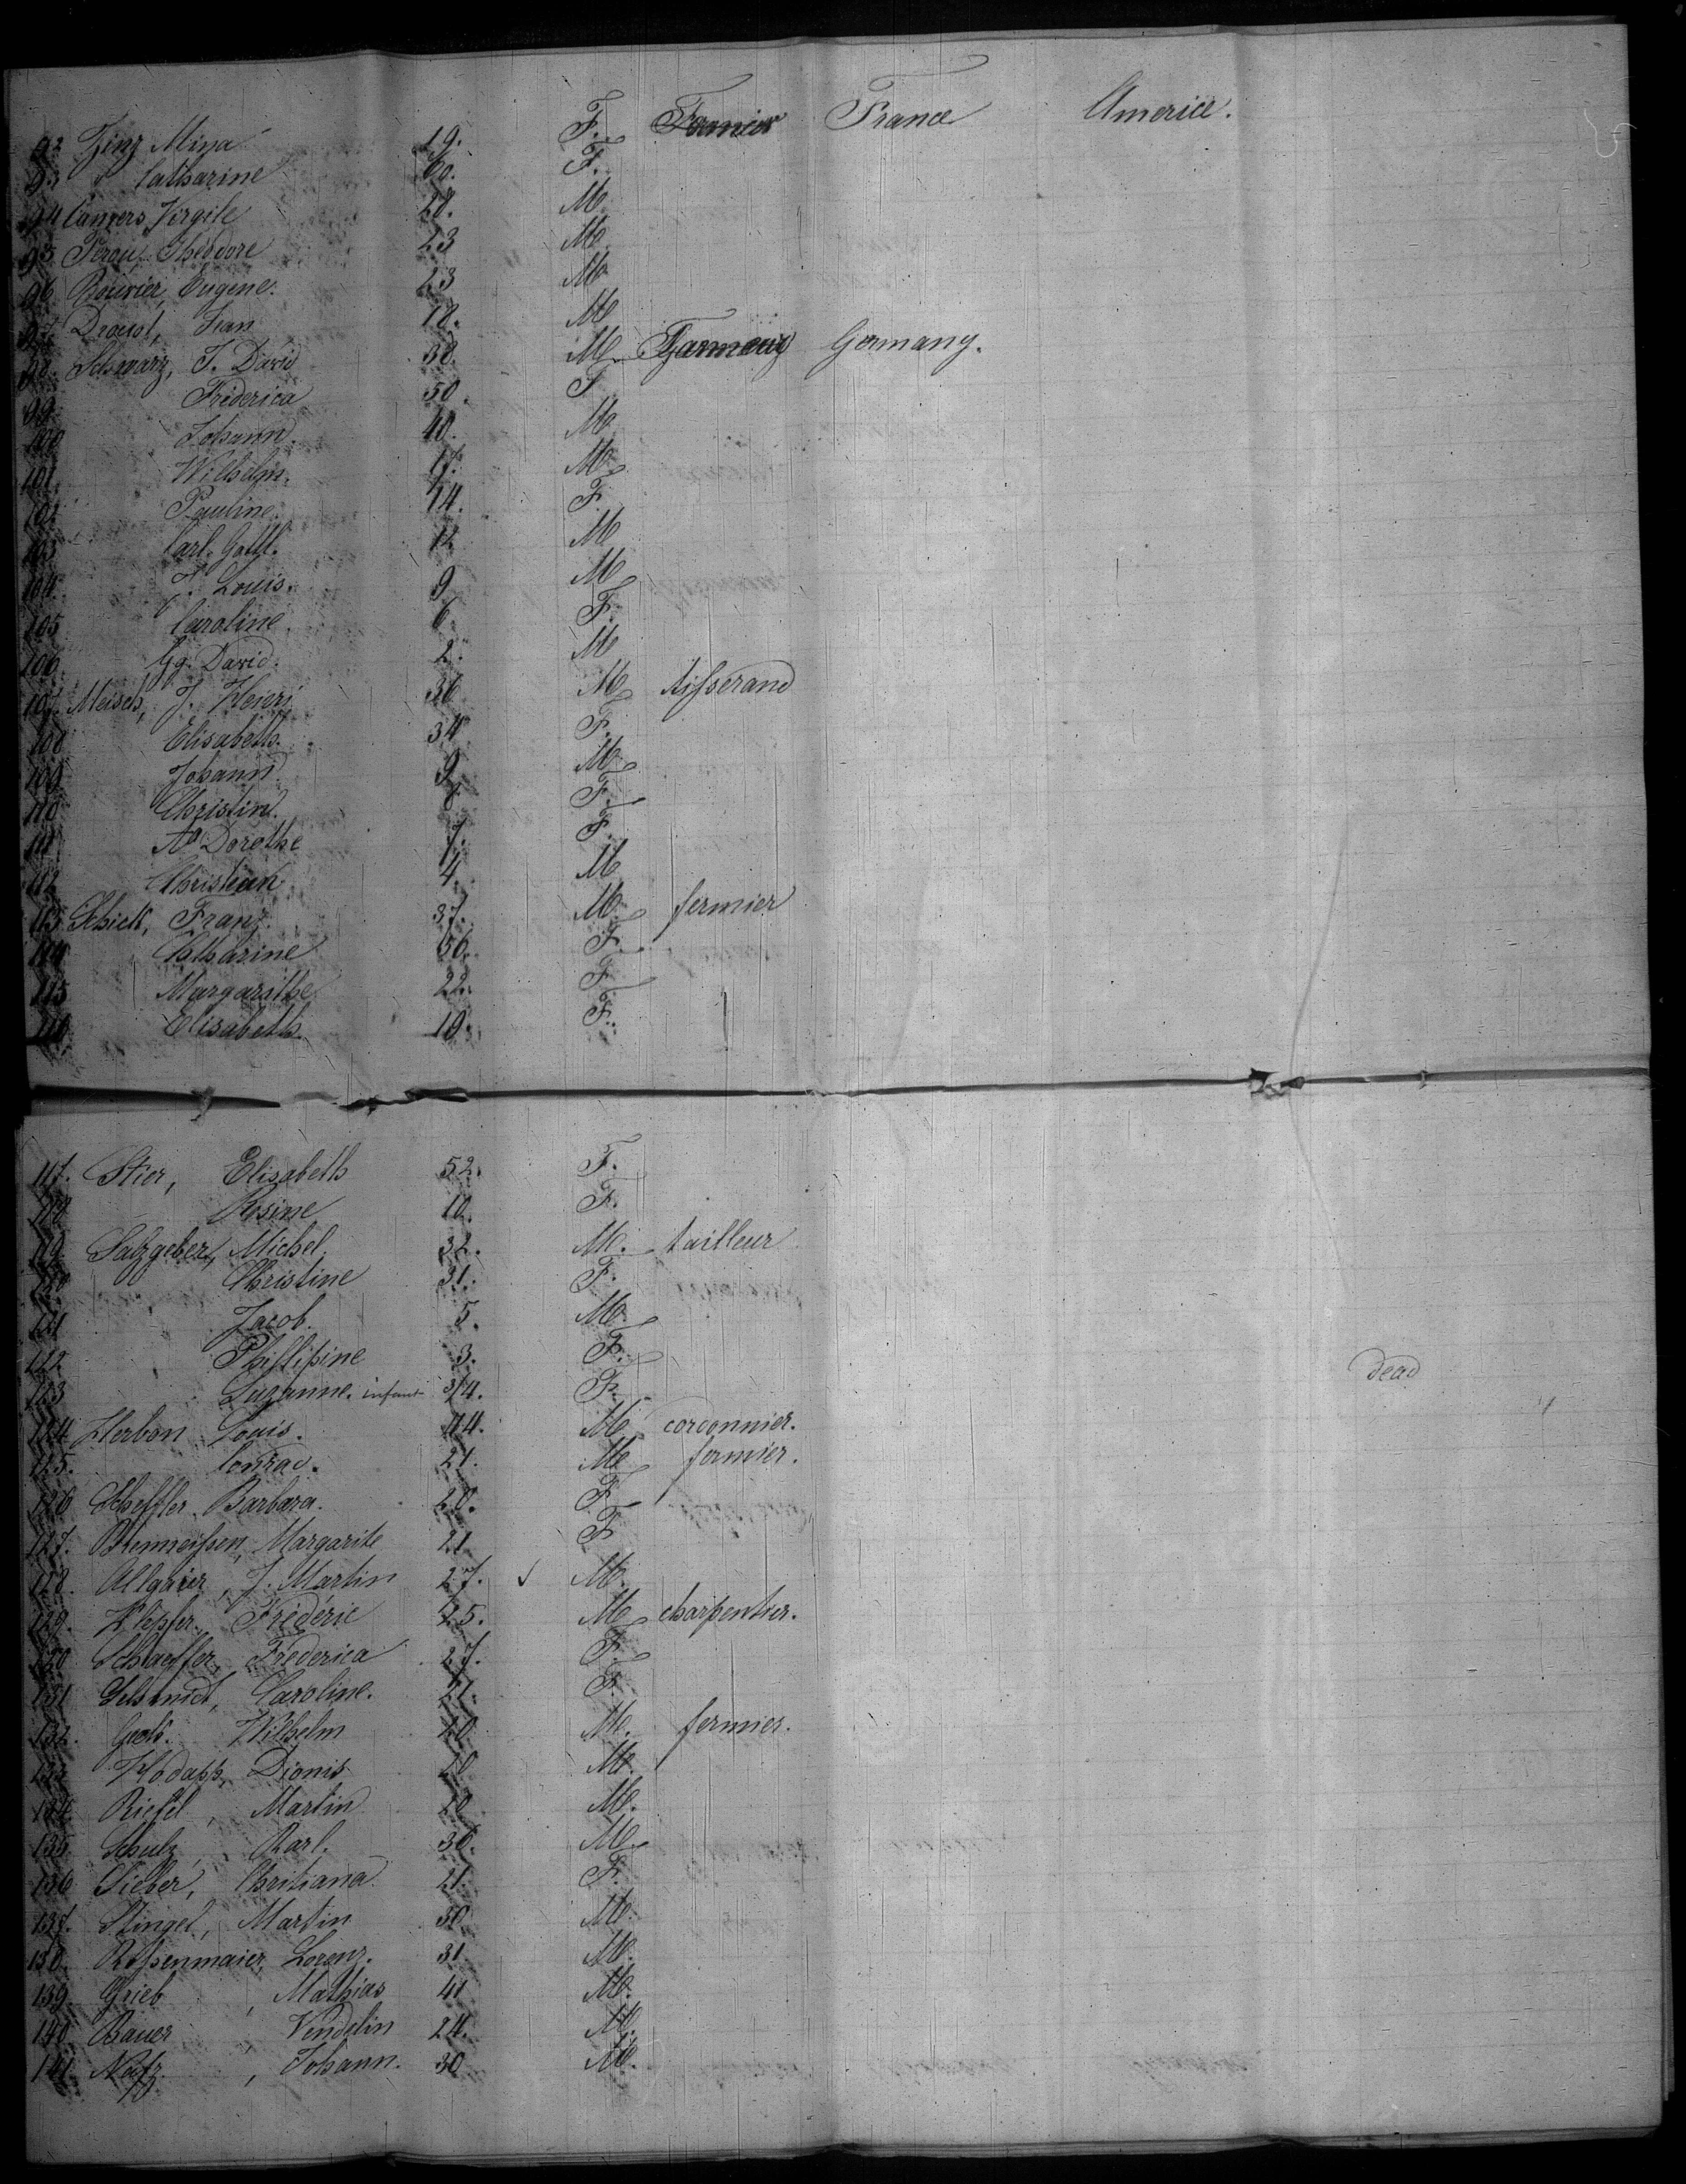 92 Zinz Mina 19. F. France America.
93 " Catharine 60. F.
94 Camers, Virgile 28. M
95 Perou, Théodore 23 M
96 Bouvier, Eugene. 23 M
97 Drouot, Jean 18. M
98 Schwarz, J. David 38. M Germany.
99 Friderica 50. F
100 Johann. 40. M
101 Wilhelm. 17. M
102 Pauline. 14. F.
103 Carl. Gottl. 12 M
104. J. Louis. 9 M
105 Caroline. 6. F.
106 Gg. David. 2. M
107. Meisch, J. Heinri 36 M tisserand
108 Elisabeth. 34 F.
109 Johann. 9 M
110 Christin. 8 F.
111 Aª Dorothe 7. F.
112 Christian 4. M
113 Schick, Franz. 37. M fermier
114 Catharine 56. F.
115 Margarithe 22. F
116 Elisabeth. 19. F.
117. Stier, Elisabeth 52. F.
118 Rosine 10. F.
119 Salzgeber, Michel 32. M. tailleur
120 Christine 31. F.
121 Jacob. 5. M.
122. Phillipine 3. F. dead
123 Suzanne. infant 3/4. F.
124 Herbon Louis. 44. M cordonnier.
125. Conrad. 21. M fermier.
126 Scheffler, Barbara. 20. F
127. Margarite 21 F
128. Allgaier, J. Martin 27. ✓ M.
129. Klepfer. Frédéric 25. M charpentier.
130 Schaeffer, Frederica 27. F.
131 Schmidt, Caroline. 21. F.
132. Wilhelm 20 M. fermier.
133 Hodapp, Dionis 20 M.
134 Riefel, Martin 20 M.
135. Schulz, Karl. 36. M.
136 Sieber, Christiana 21. F.
137. Stingel, Martin 30 M.
138. Rossenmaier, Lorenz. 31. M.
139. Grieb, Mathias 41 M.
140 Bauer, Vendelin 24. M.
141 Johann. 30 M.